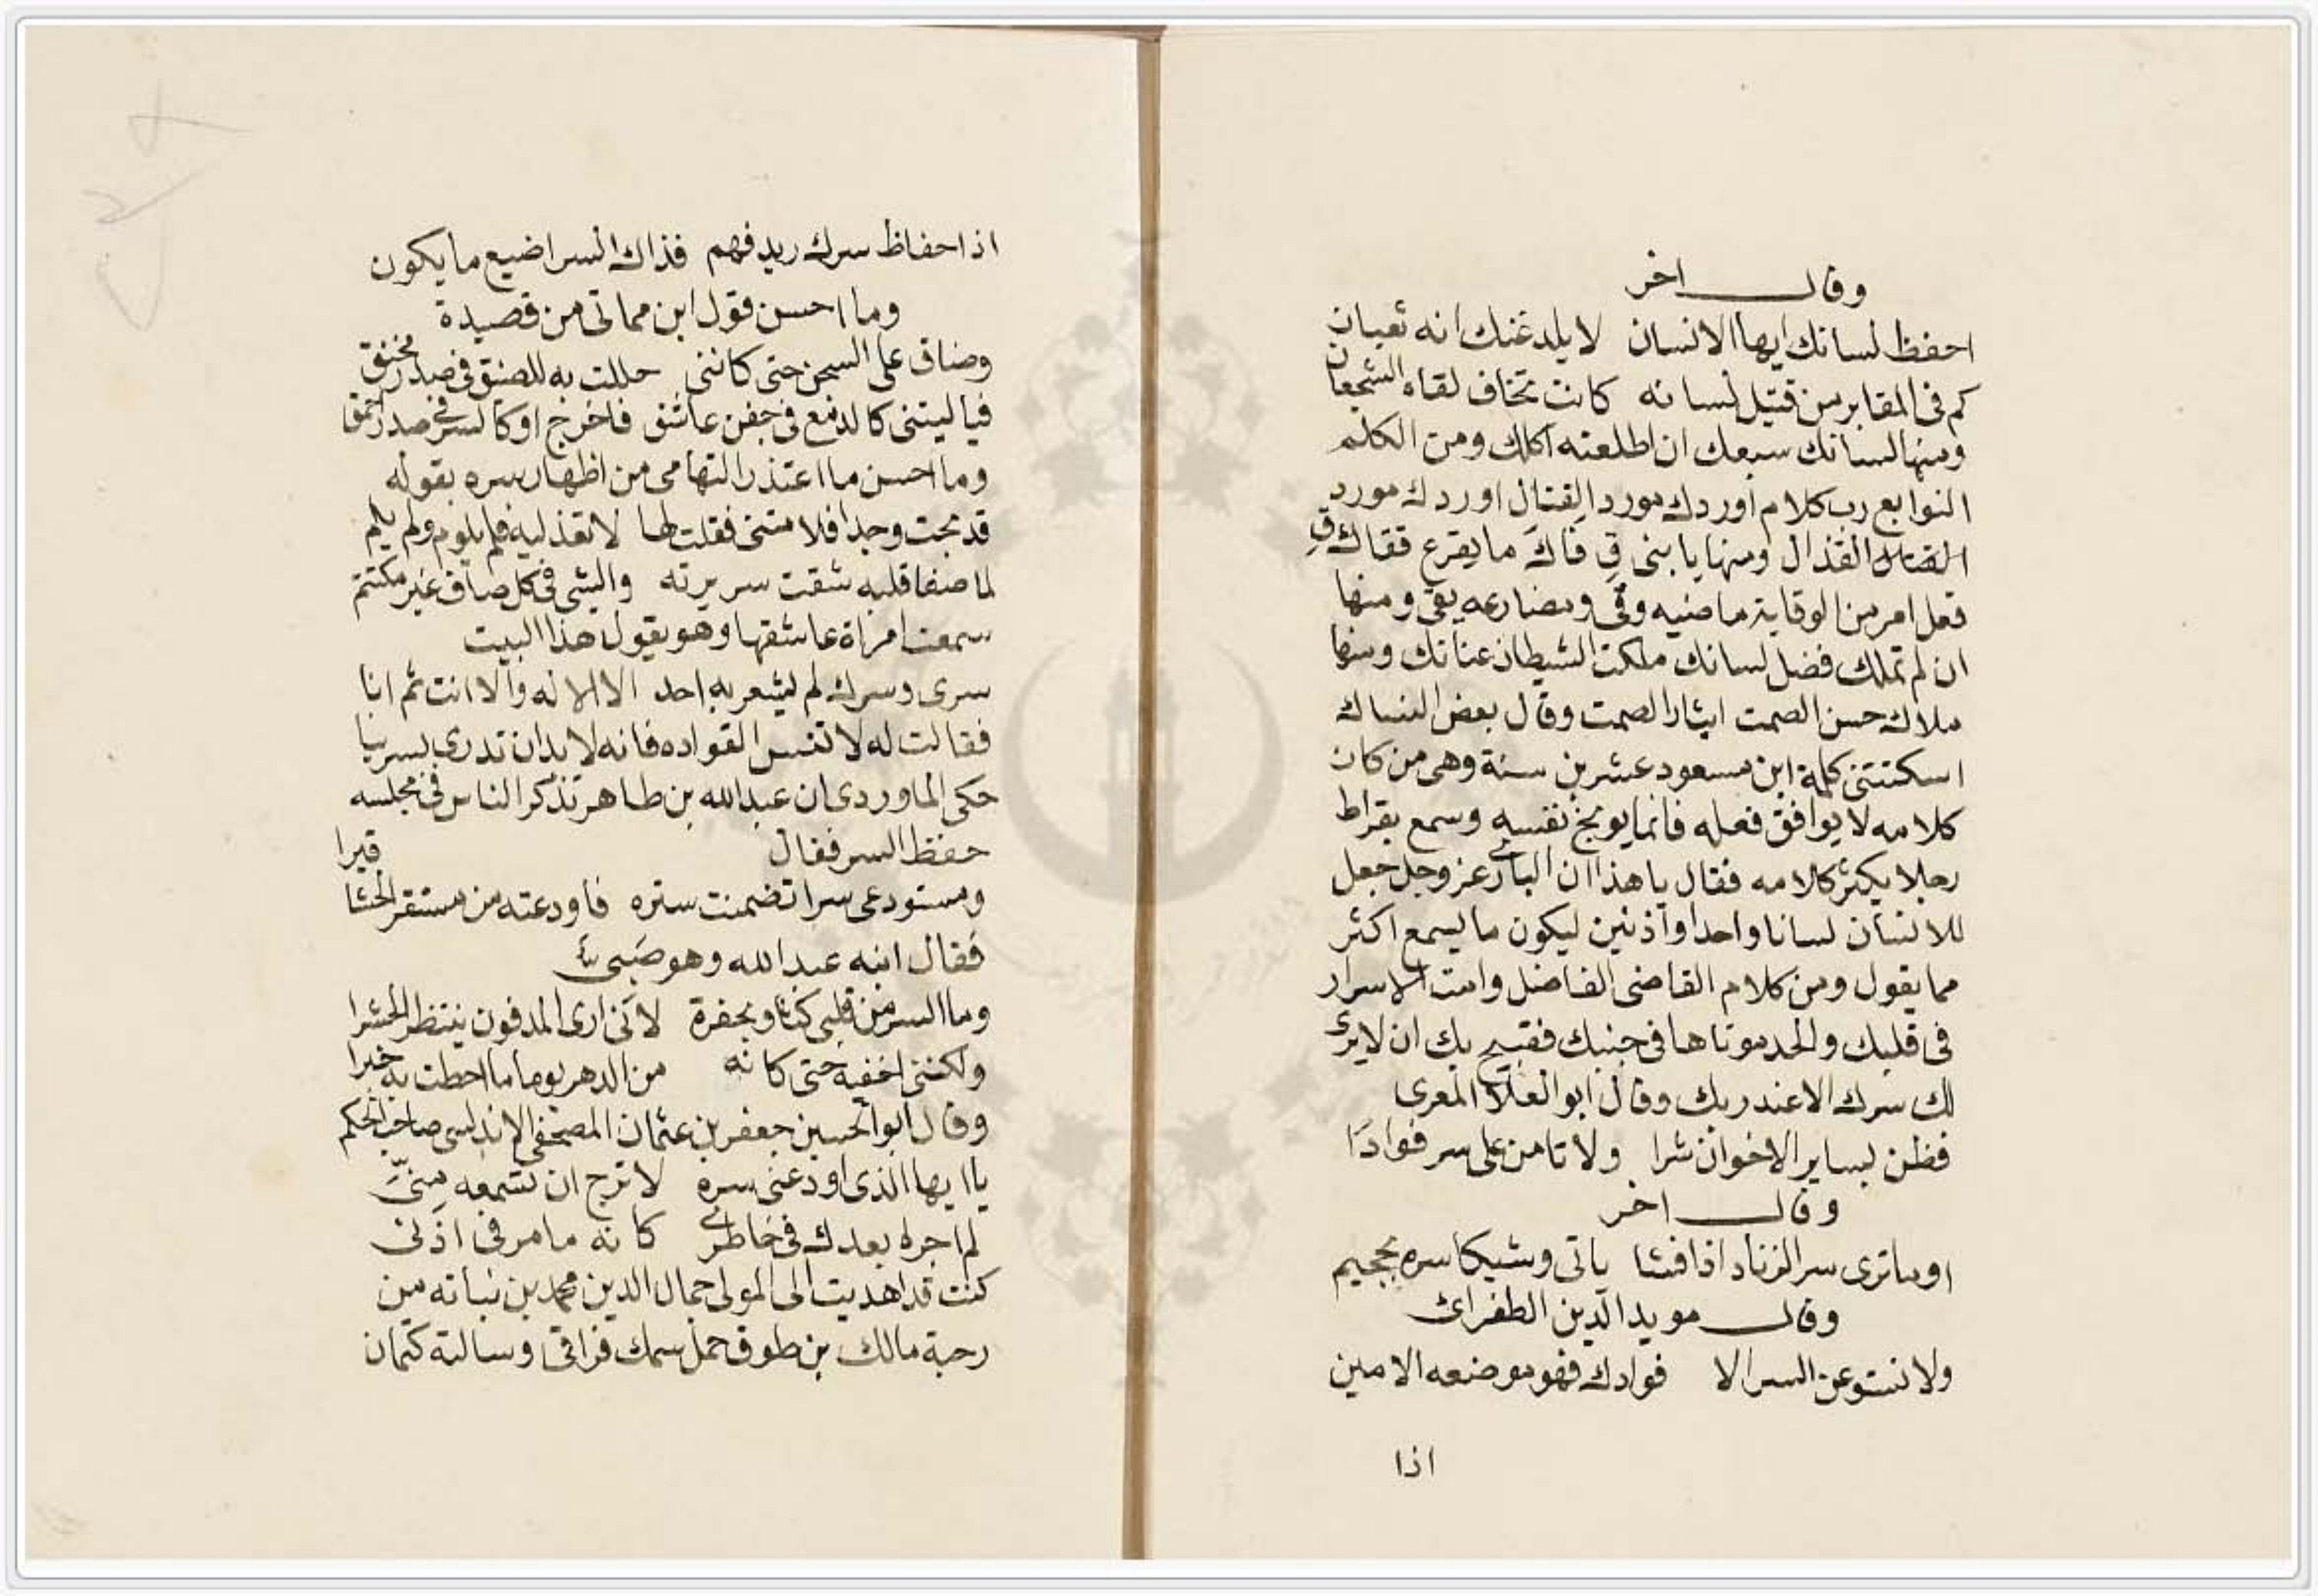 وقال اخر
احفظ لسانك ايها الانسان لا يلدغنك انه ثعبان
كم فى المقابر من قتيل لسانه كانت تخاف لقاه الشجعان
ومنها لسانك سبعك ان اطلعته اكلك ومن الكلم
النوابع رب كلام اوردك مورد القتال اوردك مورد
القتال القذال ومنها يا بنى قِ فاكَ ما يقرع قفاك قِ
فعل امر من الوقاية ماضيه وقى ومضارعه يقى ومنها
ان لم تملك فضل لسانك ملكت الشيطان عنانك ومنها
ملاك حسن الصمت ايثار الصمت وقال بعض النساك
اسكتتنى كلمة ابن مسعود عشرين سنة وهى من كان
كلامه لا يوافق فعله فانما يوبخ نفسه وسمع بقراط
رجلا يكثر كلامه فقال يا هذا ان البارئ عز وجل جعل
للانسان لسانا واحدا واذنين ليكون ما يسمع اكثر
مما يقول ومن كلام القاضى الفاضل وامت الاسرار
فى قلبك والحد موتاها فى جنبك فقبيح بك ان لا يرى
لك سرك الا عند ربك وقال ابو العلا المعرى
فظن بساير الاخوان شرا ولا تامن على سر فوادا
وقال اخر
اوماترى سر الزناد اذا فشا ياتى وشيكا سره بجحيم
وقال مويد الدين الطغرائ
ولا تستوعن السر الا فوادك فهو موضعه الامين
اذا
اذا حفاظ سرك ريد فهم فذاك السر اضيع ما يكون
وما احسن قول ابن مماتى من قصيدة
وضاق على السجن حتى كاننى حللت به للضيق فى صدر مخنق
فيا ليتنى كالدمع فى جفن عاشق فاخرج او كالسر فى صدر احمق
وما احسن ما اعتذر التهامى من اظهار سره بقوله
قد بحت وجدا فلامتنى فقلت لها لا تعذليه فلم يلوم ولم يلم
لما صفا قلبه شقت سريرته والشى فى كل صاف غير مكتتم
سمعت امراة عاشقها وهو يقول هذا البيت
سرى وسرك لم يشعر به احد الا الاله والا انت ثم انا
فقالت له لا تنس القواده فانه لا بد ان تدرى بسرنا
حكى الماوردى ان عبد الله بن طاهر تذكر الناس فى مجلسه
حفظ السر فقال قبرا
ومستودعى سرا تضمنت ستره فاودعته من مستقر الحشا
فقال ابنه عبد الله وهو صبى
وما السر من قلبى كثاو بحفرة لانى ارى المدفون ينتظر الحشرا
ولكننى اخفيه حتى كانه من الدهر يوما ما احطت به خبرا
وقال ابو الحسين جعفر بن عثمان المصحفى الاندلسى صاحب الحكم
يا ايها الذى اودعنى سره لا ترج ان تسمعه منىّ
لم اجره بعدك فى خاطرى كانه ما مر فى اذنى
كنت قد اهديت الى المولى جمال الدين محمد بن نباته من
رحبة مالك بن طوق حمل سمك قراقى وسالته كتمان